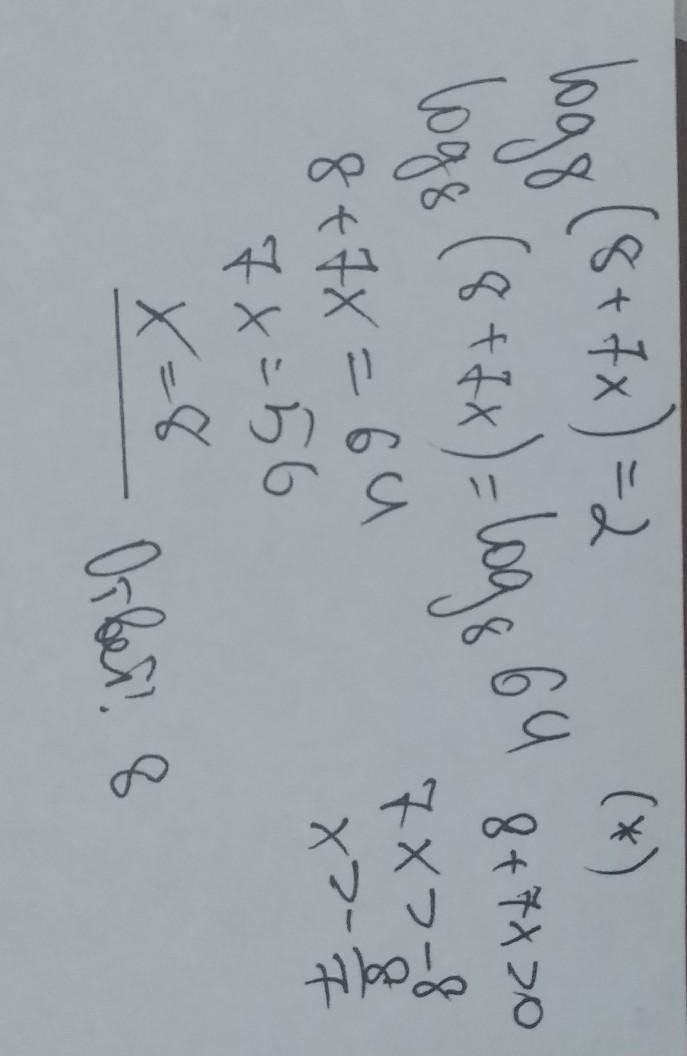 log₈(8+7x)=2
log₈(8+7x)=log₈64
8+7x=64
7x=56
x=8
Ответ: 8
(*)
8+7x>0
7x>-8
x>-8/7